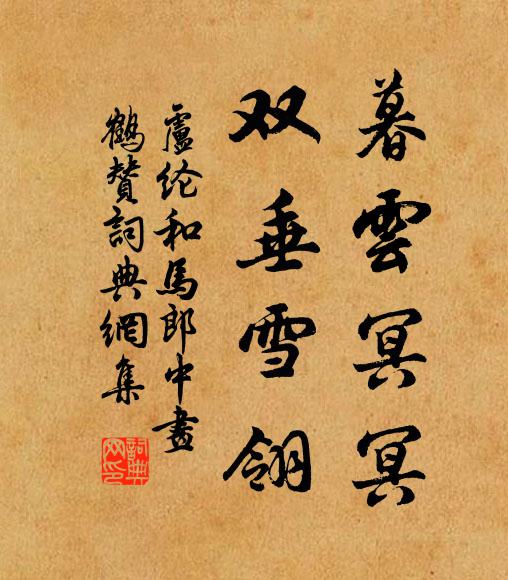 暮雲冥冥
双垂雪翎
盧纶和馬郎中畫
鶴赞詞典網集
詞典网印